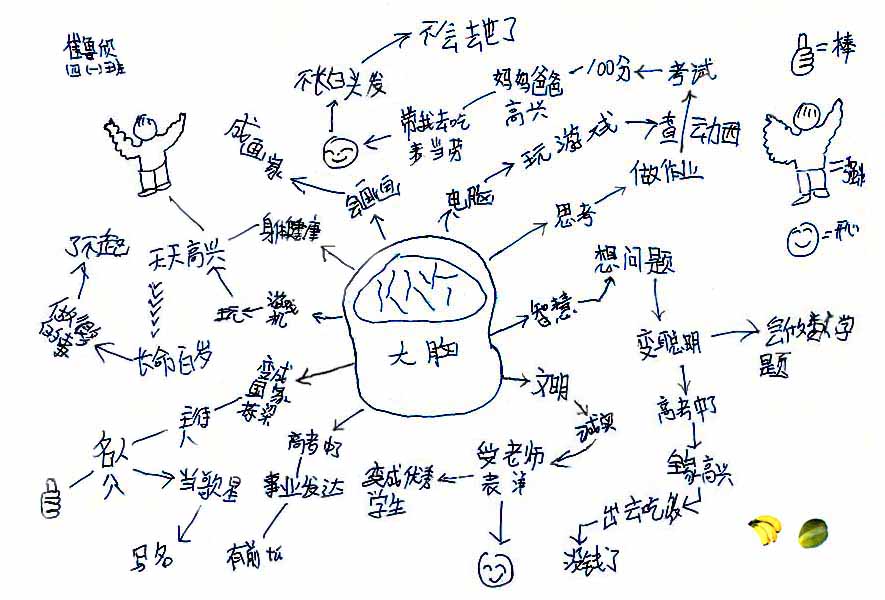 崔鲁侦
四(一)班
不会去世了
不长白头发
妈妈爸爸
高兴
100分
考试
=棒
带我去吃
麦当劳
成画家
会画画
电脑
玩游戏
查动西
做作业
思考
=强壮
=开心
了不起
天天高兴
身体健康
想问题
玩
游戏
机
智慧
大脑
变聪明
会做数学
题
长命百岁
变成
国家
栋梁
文明
诚实
高考中了
主持
人
名人
高考中了
受老师
表洋
全家高兴
当歌星
事业发达
变成优秀
学生
出去吃饭
写名
有前
没钱了